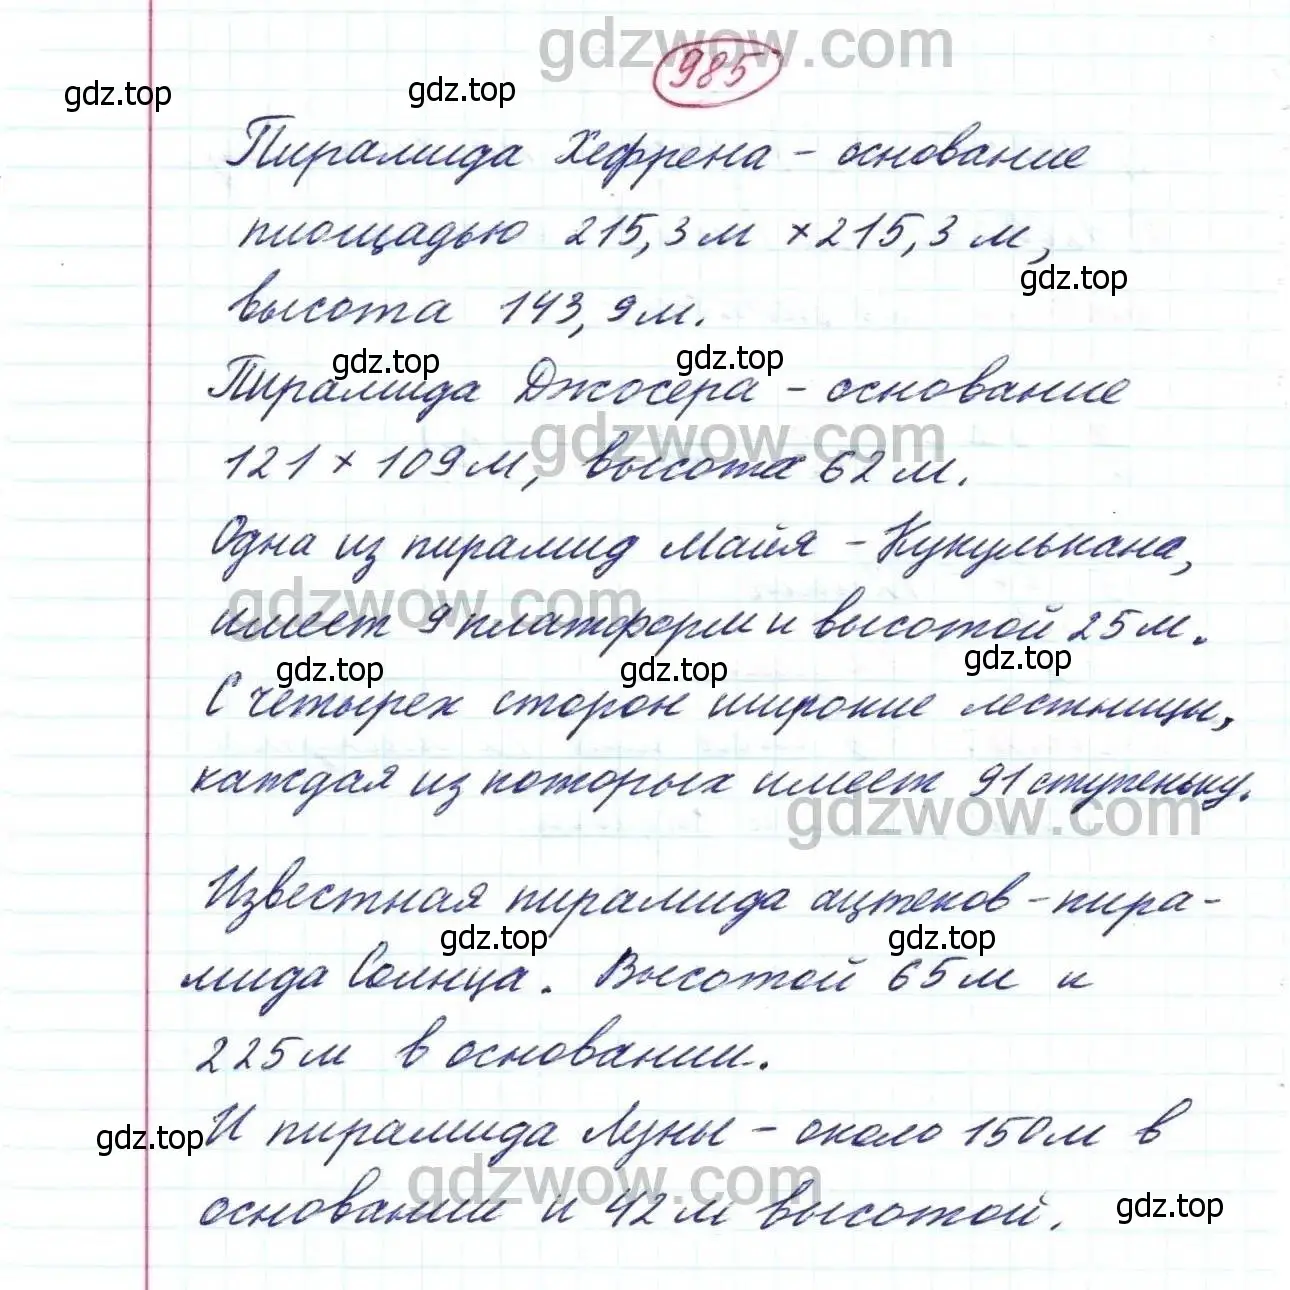 gdzwow.com
985
gdz.top gdz.top
Пирамида Хефрена - основание
площадью 215,3 м × 215,3 м,
gdz.top
высота 143,9 м.
gdz.top gdz.top
Пирамида Джосера - основание
gdzwow.com
121 × 109 м, высота 62 м.
Одна из пирамид Майя - Кукулькана,
gdzwow.com
имеет 9 платформ и высотой 25 м.
gdz.top gdz.top gdz.top
С четырех сторон широкие лестницы,
каждая из которых имеет 91 ступеньку.
gdzwow.com
Известная пирамида ацтеков - пира-
gdz.top gdz.top
мида Солнца. Высотой 65 м и
225 м в основании.
gdz.top
И пирамида Луны - около 150 м в
gdzwow.com
основании и 42 м высотой.
gdz.top